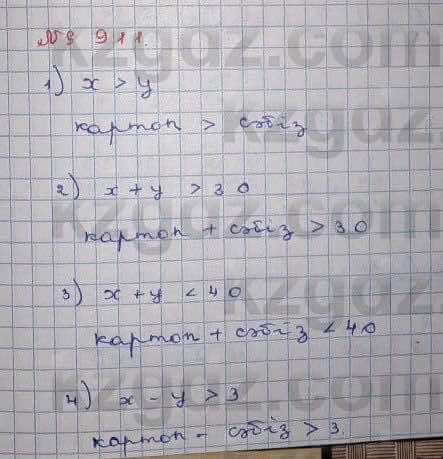 № 911.
1) x > y
картоп > сәбіз
2) x + y > 30
картоп + сәбіз > 30
3) x + y < 40
картоп + сәбіз < 40
4) x - y > 3
картоп - сәбіз > 3.
kzgdz.com